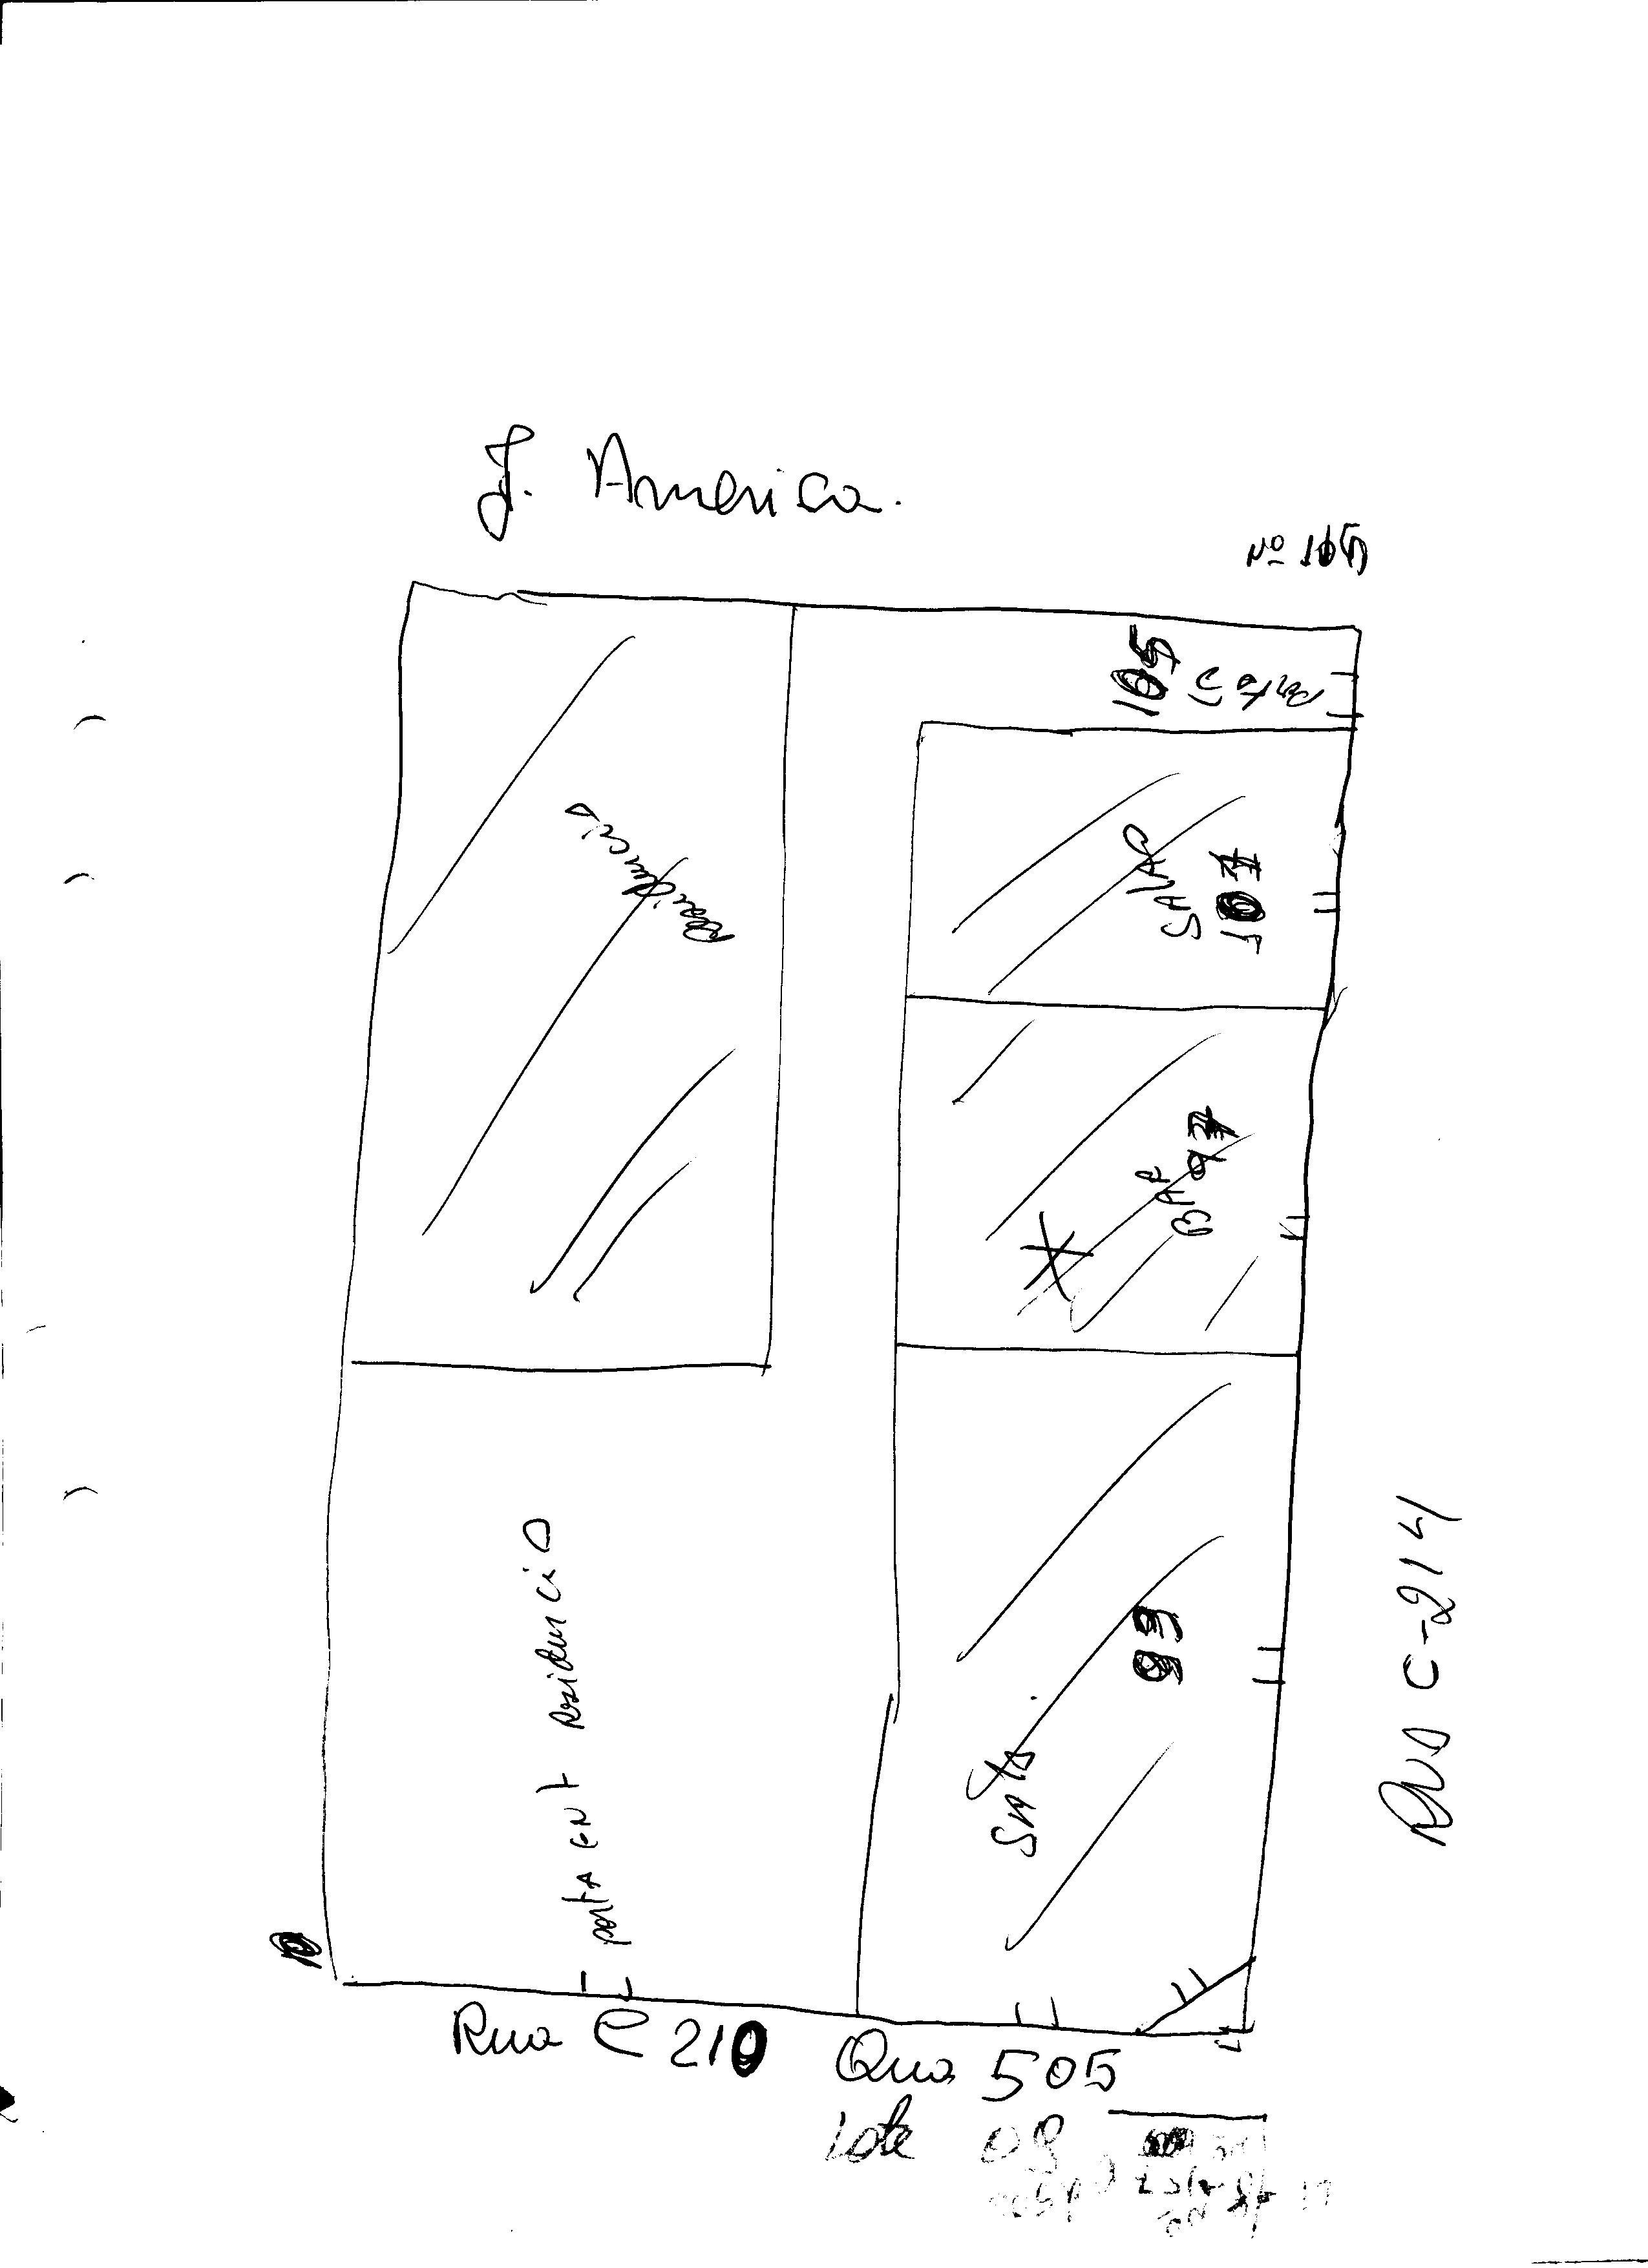 J. America.
Nº 105
105
Portão
Residencia
SALÃO
107
BAR
97
X
porta ENT Residencia
SALA
99
Rua C-214
Rua C 210
Qua 505
Lote 08